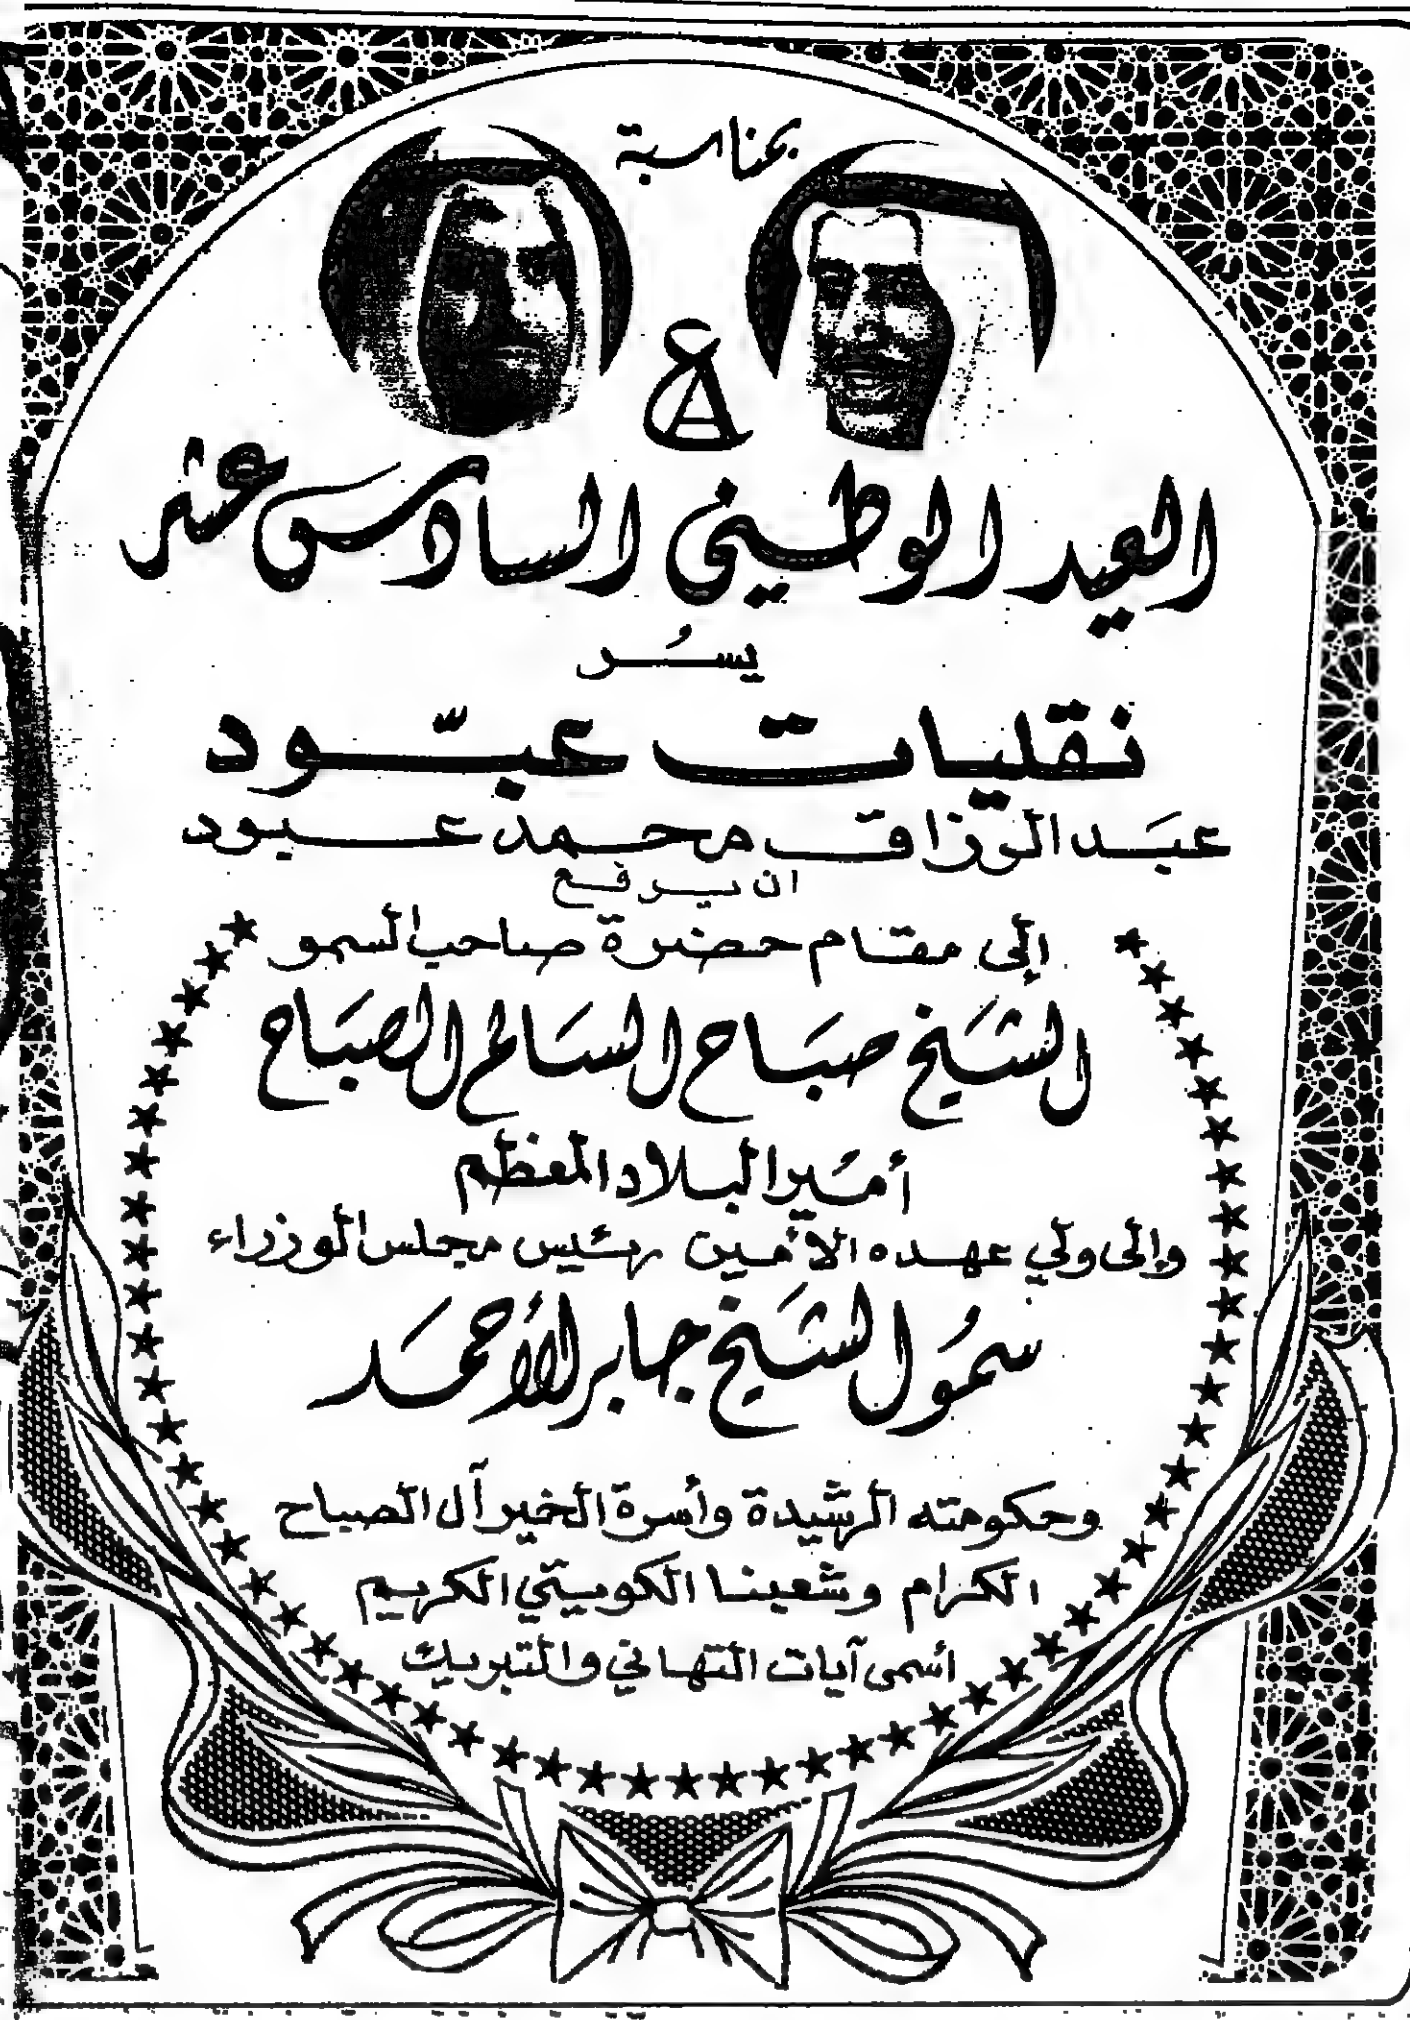 بمناسبة
العيد الوطني السادس عشر
يسُر
نقليات عبّود
عبَد الرزاق محمد عبود
ان يرفع
إلى مقام حضرة صاحب السمو
الشيَخ صبَاح السَالم الصبَاح
أمَير البلاد المعظم
وإلى ولي عهده الأمين رئيس مجلس الوزراء
سمُو الشيَخ جابر الأحمَد
وحكومته الرشيدة وأسرة الخير آل الصباح
الكرام وشعبنا الكويتي الكريم
اسمى آيات التهاني والتبريك